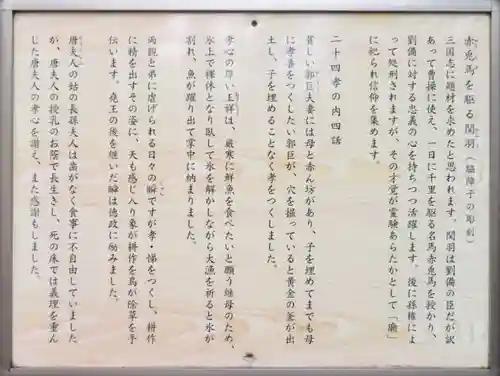 赤兎馬を駆る関羽（脇障子の彫刻）
三国志に題材を求めたと思われます。関羽は劉備の臣だが訳
あって曹操に使え、一日に千里を駆る名馬赤兎馬を授かり、
劉備に対する忠義の心を持ちつつ活躍します。後に孫権によ
って処刑されますが、その才覚が霊験あらたかとして「廟」
に祀られ信仰を集めます。
二十四孝の内四話
貧しい郭巨夫妻には母と赤ん坊があり、子を埋めてまでも母
に孝養をつくしたい郭巨が、穴を掘っていると黄金の釜が出
土し、子を埋めることなく孝をつくしました。
孝心の厚い王祥は、厳寒に鮮魚を食べたいと願う継母のため、
氷上で裸体となり臥して氷を解かしながら大漁を祈ると氷が
割れ、魚が躍り出て掌中に納まりました。
両親と弟に虐げられる日々の瞬ですが孝・悌をつくし、耕作
に精を出すその姿に、天も感じ入り象が耕作を鳥が除草を手
伝います。堯王の後を継いだ瞬は徳政に励みました。
唐夫人の姑の長孫夫人は歯がなく食事に不自由していました
が、唐夫人の授乳のお蔭で長生きし、死の床では義理を重ん
じた唐夫人の孝心を讃え、また感謝もしました。